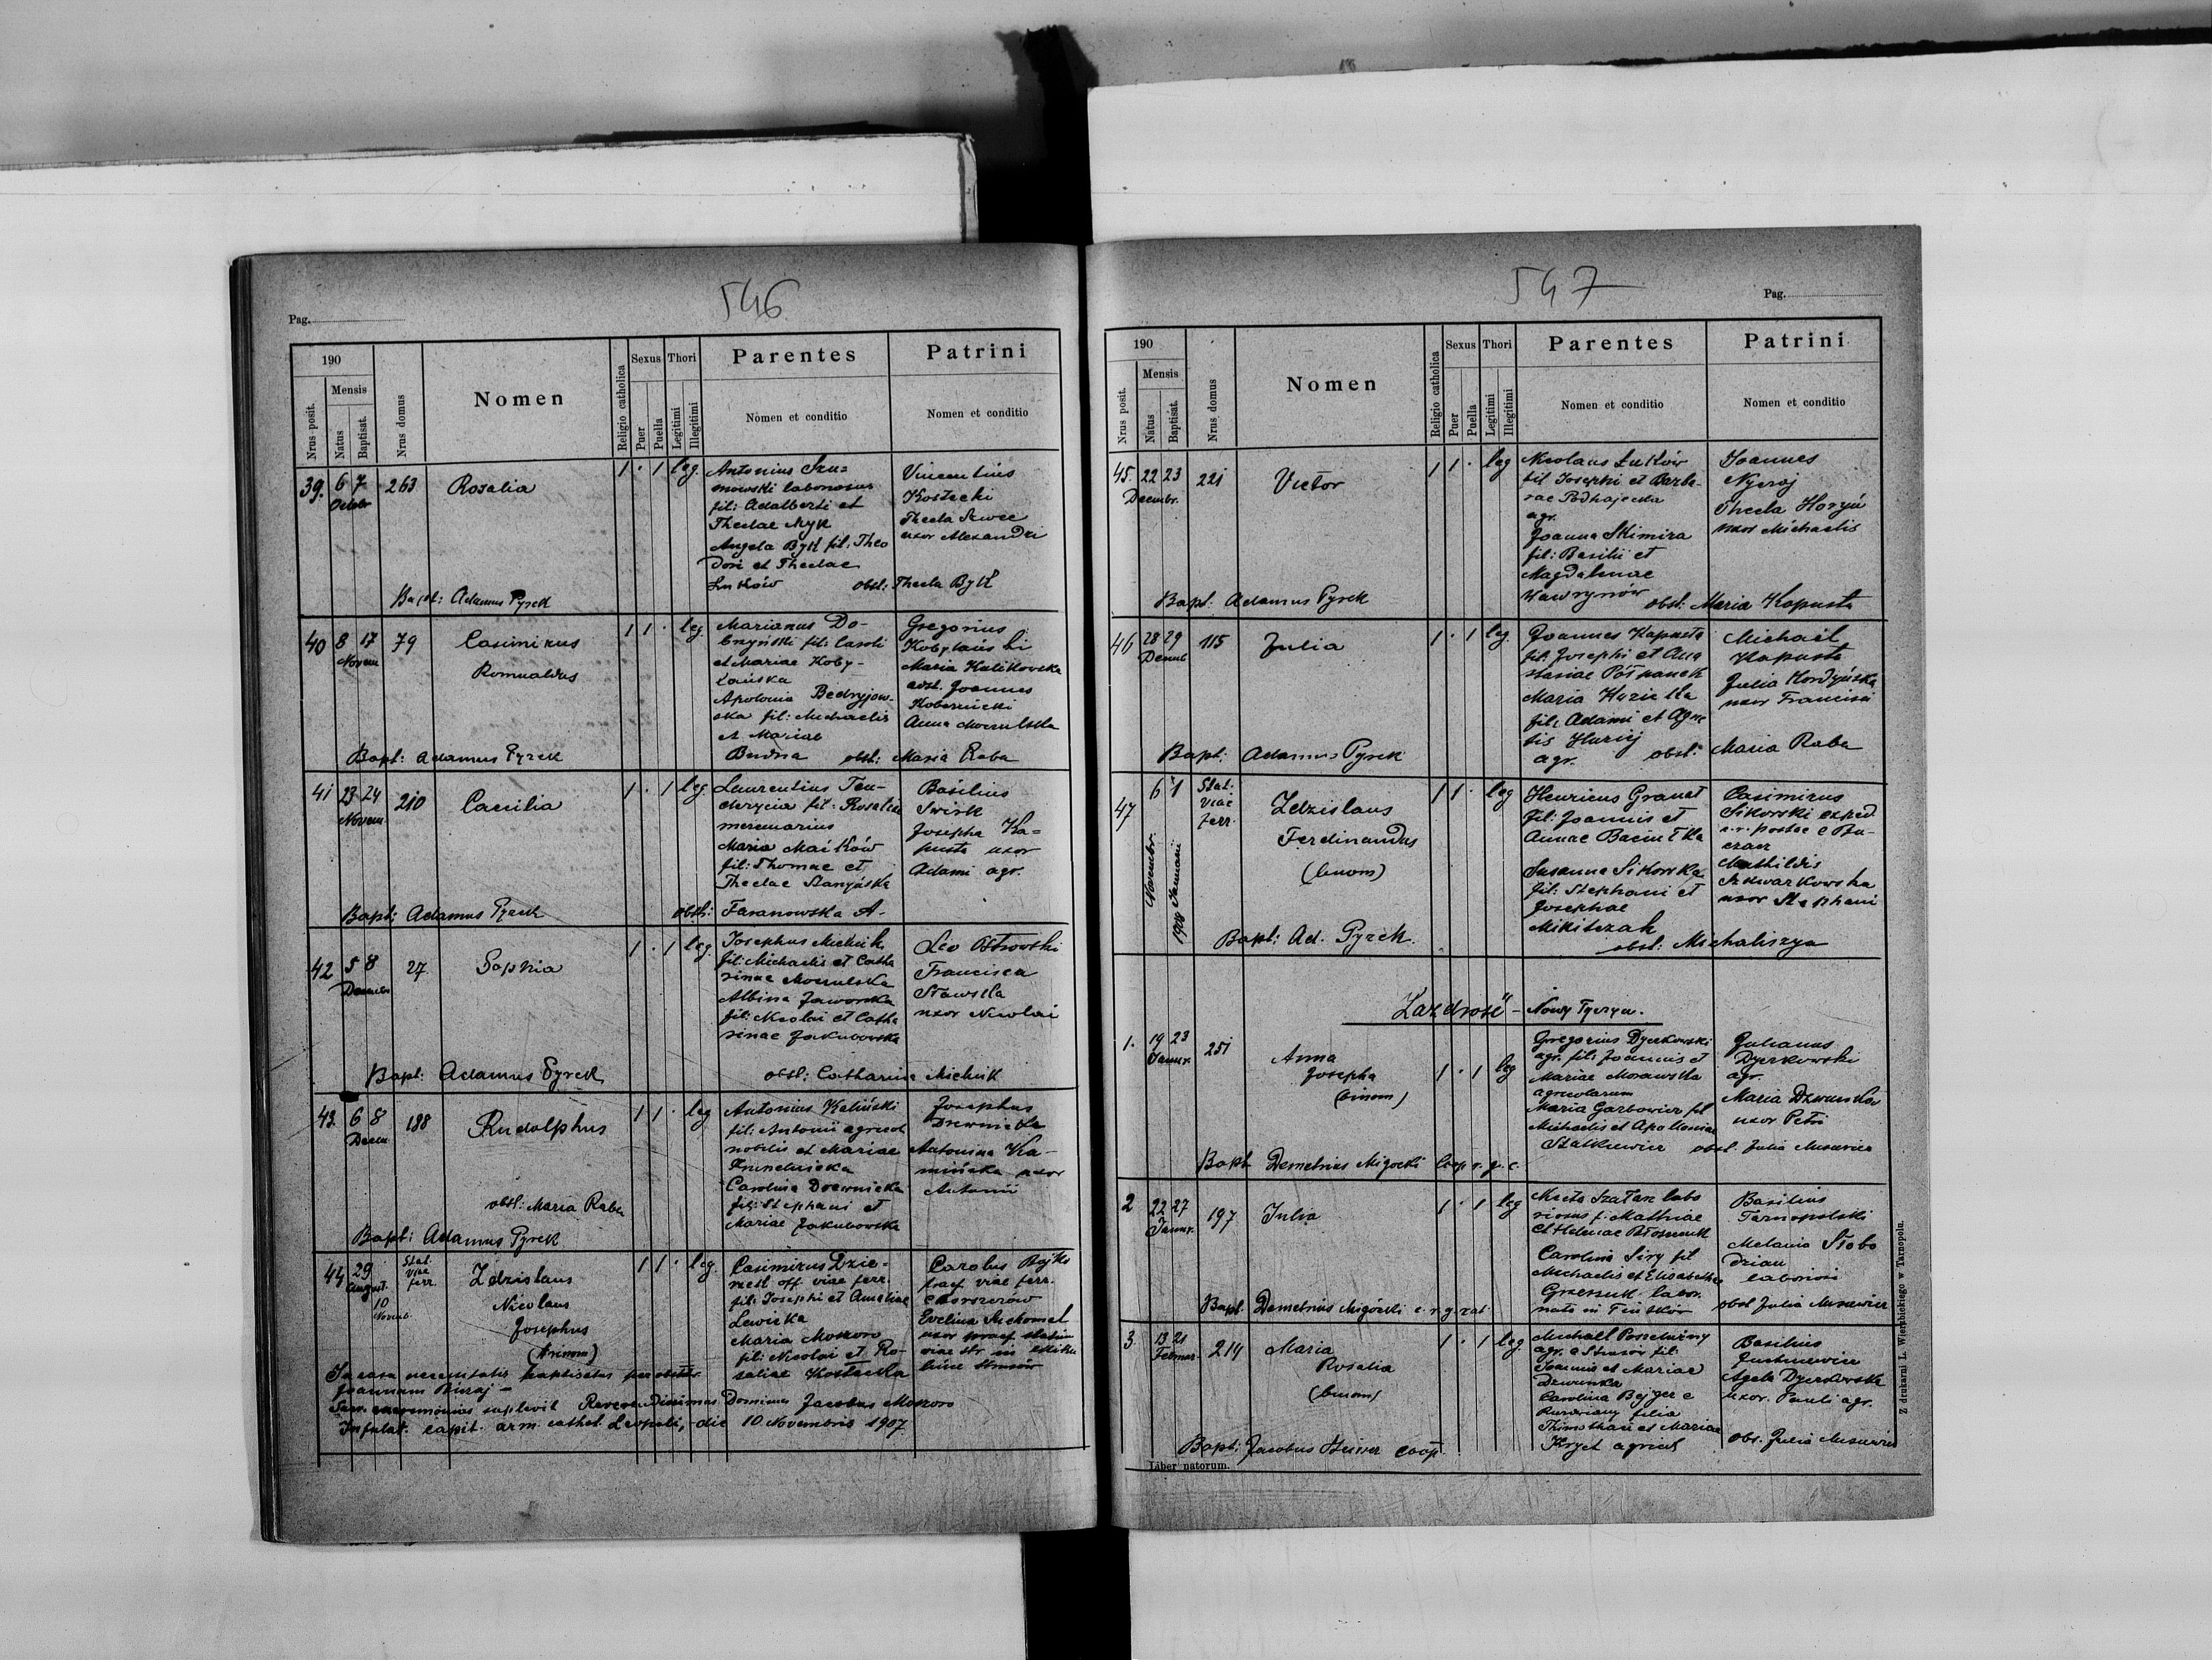 546
Pag.
190
Mensis
Nrus posit.
Natus
Baptisat.
Nrus domus
Nomen
Religio catholica
Sexus
Puer
Puella
Thori
Legitimi
Illegitimi
Parentes
Nomen et conditio
Patrini
Nomen et conditio
39. 6 7 263 Rosalia 1 · 1 leg.
Octobr
Antonius Szu=
mowski laboriosus
fil: Adalberti et
Theclae Myk
Angela Byk fil. Theo
dori et Theclae
Lukow
Vincentius
Kostecki
Thecla Szwec
uxor Alexandri
obst: Thecla Byk
Bapt: Adamus Pyrek
40 8 17 79 Casimirus 1 1 · leg.
Novem
Romualdus
Marianus Do-
brzyński fil: Caroli
et Mariae Koby-
łańska
Apolonia Bedryjow-
ska fil: Michaelis
et Mariae
Budna
Gregorius
Kobylański
Maria Kulikowska
adst. Joannes
Kobernicki
Anna Moczulska
obst: Maria Raba
Bapt: Adamus Pyrek
41 23 24 210 Caecilia 1 · 1 leg
Novem
Laurentius Ten-
derycia fil: Rosaliae
mercenarius
Maria Maików
fil: Thomae et
Theclae
Basilius
Swirk
Josepha Ka=
pusta uxor
Adami agr.
obst: Taranowska A.
Bapt: Adamus Pyrek
42 5 8 27 Sophia 1 · 1 leg
Decembr
Josephus Michnik
fil: Michaelis et Catha
rinae Moczulska
Albina Jaworska
fil: Nicolai et Catha
rinae Jakubowska
Leo
Francisca
Stawska
uxor Nicolai
obst: Catharina Michnik
Bapt: Adamus Pyrek
43. 6 8 188 Rudolphus 1 1 · leg
Decem
Antonius Kaliński
fil: Antonii agricol
nobilis et Mariae
Carolina Drewnicka
fil: Stephani et
Mariae Jakubowska
Josephus
Drewnicki
Antonina Ka-
mińska uxor
Antonii
obst: Maria Raba
Bapt: Adamus Pyrek
44 29 Stat. viae ferr. Zdzislaus 1 1 · leg.
August.
10
Novemb.
Nicolaus
Josephus
(trinom)
Casimirus Dzie-
off. viae ferr.
fil: Josephi et Ameliae
Lewicka
Maria Moszoro
fil: Nicolai et Ro-
saliae Kostecka
Carolus Bojko
praef viae ferr.
Evelina
uxor praef. station
viae str in Miku
lińce Strusów
In casu necessitatis baptisatus per obstetr.
Joannam
Sacr. caeremonias suplevit Reverendissimus Dominus Jacobus Moszoro
Infulat. capit. arm. cathet. Leopoli, die 10 Novembris 1907
547
Pag.
190
Mensis
Nrus posit.
Natus
Baptisat.
Nrus domus
Nomen
Religio catholica
Sexus
Puer
Puella
Thori
Legitimi
Illegitimi
Parentes
Nomen et conditio
Patrini
Nomen et conditio
45. 22 23 221 Victor 1 1 · leg
Decembr.
Nicolaus Łuków
fil Josephi et Barba-
rae Podhajecka
agr.
Joanna Skimira
fil: Basilii et
Magdalenae
Hawrynów
Joannes
Nyczaj
Thecla Horyń
uxor Michaelis
obst: Maria Kapusta
Bapt: Adamus Pyrek
46 28 29 115 Julia 1 · 1 leg.
Decemb
Joannes Kapusta
fil. Josephi et Ana
stasiae Półtranek
Maria
fil: Adami et Agne
tis
agr.
Michael
Kapusta
Julia Hordyńska
uxor Francisci
obst: Maria Raba
Bapt: Adamus Pyrek
47 6 1 Stat. viae ferr. Zdzislaus 1 1 · leg
Novembr. 1908 Januarii
Ferdinandus
(binom)
Henricus Granat
fil: Joannis et
Annae
Susanna Sikorska
fil: Stephani et
Josephae
Mikitczak
Casimirus
Sikorski exped
c.r. postae e Bu-
czacz
Mathildis
Szkwarkowska
uxor Stephani
obst: Michaliszyn
Bapt: Ad. Pyrek.
Zazdrość - Nowy Tyczyn.
1. 19 23 251 Anna 1 · 1 leg
Januar.
Josepha
(binom)
Gregorius Dyczkowski
agr. fil: Joannis et
Mariae Morawska
agricolarum
Maria Garbowicz fil
Michaelis et Apolloniae
Statkiewicz
Julianus
Dyczkowski
agr.
Maria Dzwunska
uxor Petri
obst. Julia Musiewicz
Bapt Demetrius Migocki Coop r. g. c.
2 22 27 197 Julia 1 · 1 leg
Januar.
labo
riosus f. Mathiae
et Helenae
Carolina Siry fil
Michaelis et Elisabethae
Grzeszuk labor.
nata in
Basilius
Tarnopolski
Melania Słobo
dzian
laboriosi
obst Julia Musiewicz
Bapt. Demetrius Migócki c. r. g. cat
3. 13 21 214 Maria 1 · 1 leg
Februar.
Rosalia
(binom)
Michael
agr. e Strusów fil:
Joannis et Mariae
Dzwunka
Carolina Bejger e
filia
Thimothaei et Mariae
Kryct agricol
Basilius
Juchniewicz
Agata Dyczkowska
uxor. Pauli agr.
obs. Julia Musiewicz
Bapt: Jacobus coop.
Liber natorum.
Z drukarni L. Wierzbickiego w Tarnopolu.